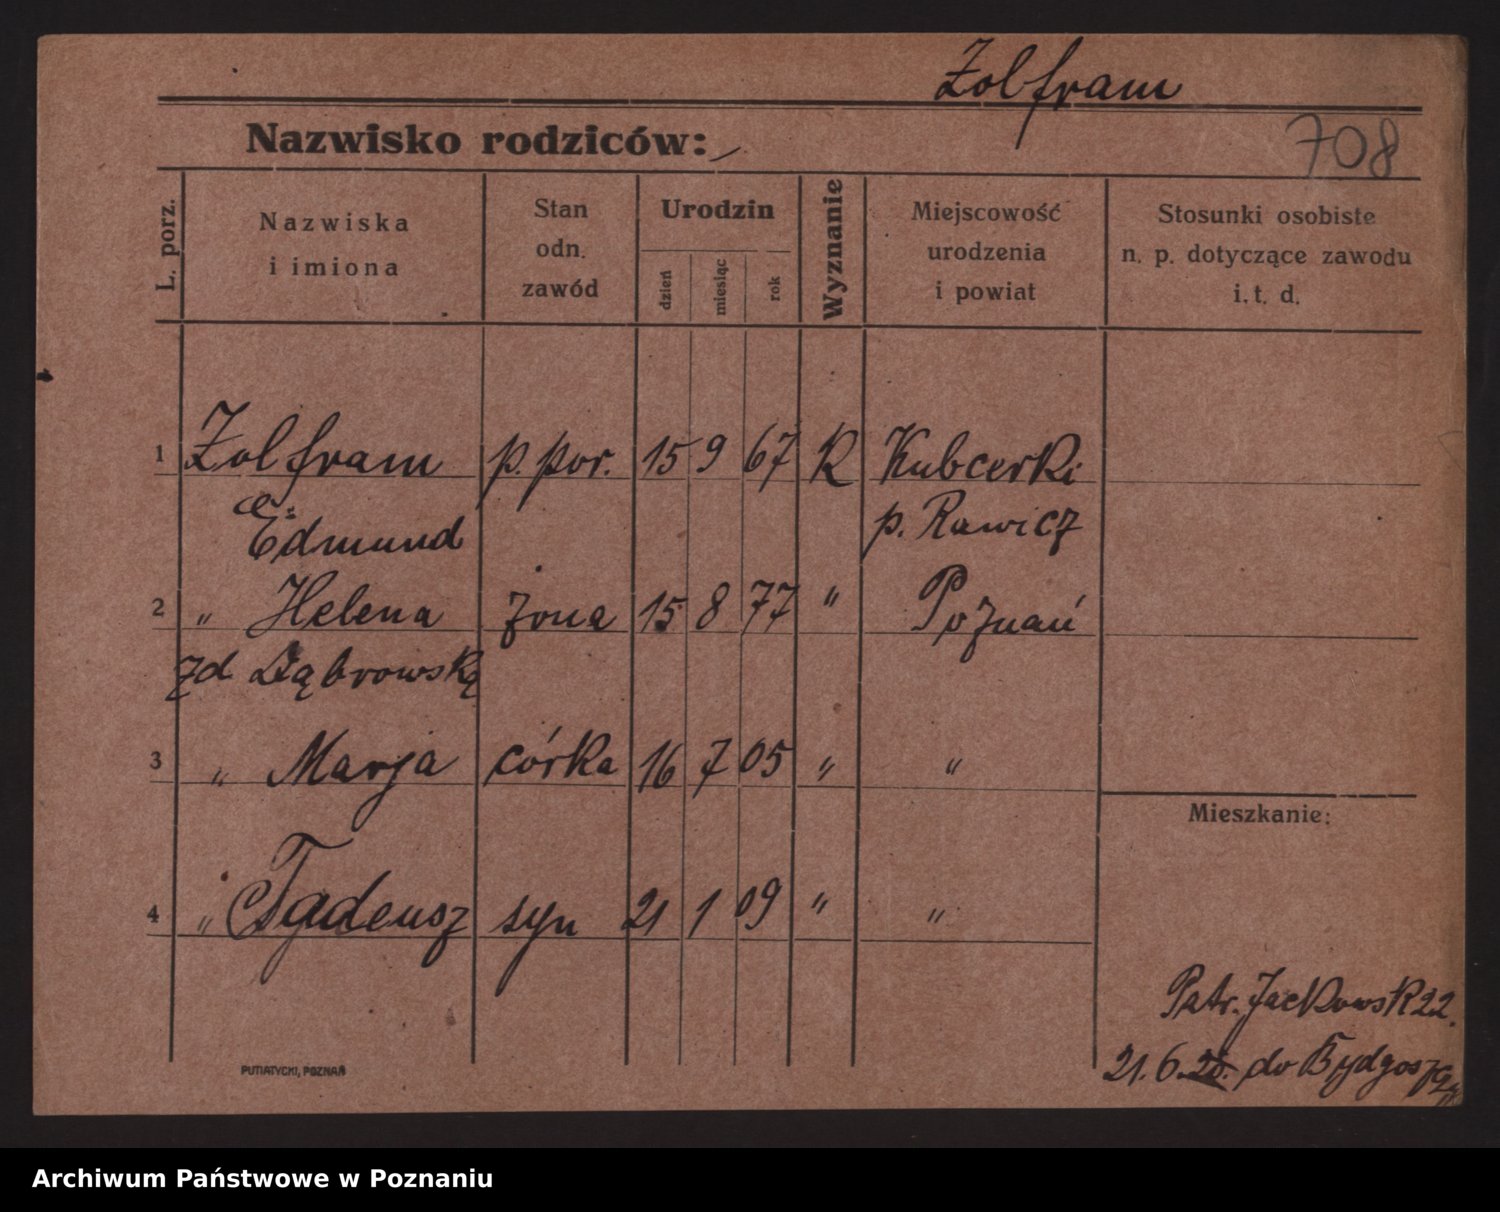 Żolfram
Nazwisko rodziców:
708
L. porz.
Nazwiska i imiona
Stan odn. zawód
Urodzin
dzień
miesiąc
rok
Wyznanie
Miejscowość urodzenia i powiat
Stosunki osobiste n. p. dotyczące zawodu i. t. d.
1 Żolfram p. por. 15 9 67 R Kubcerki
Edmund p. Rawicz
2 " Helena żona 15 8 77 " Poznań
zd Dąbrowska
3 " Marja córka 16 7 05 " "
Mieszkanie:
4 " Tadeusz syn 21 1 09 " "
Patr. Jackowsk 22.
21. 6. do Bydgoszczy
PUTIATYCKI, POZNAŃ
Archiwum Państwowe w Poznaniu